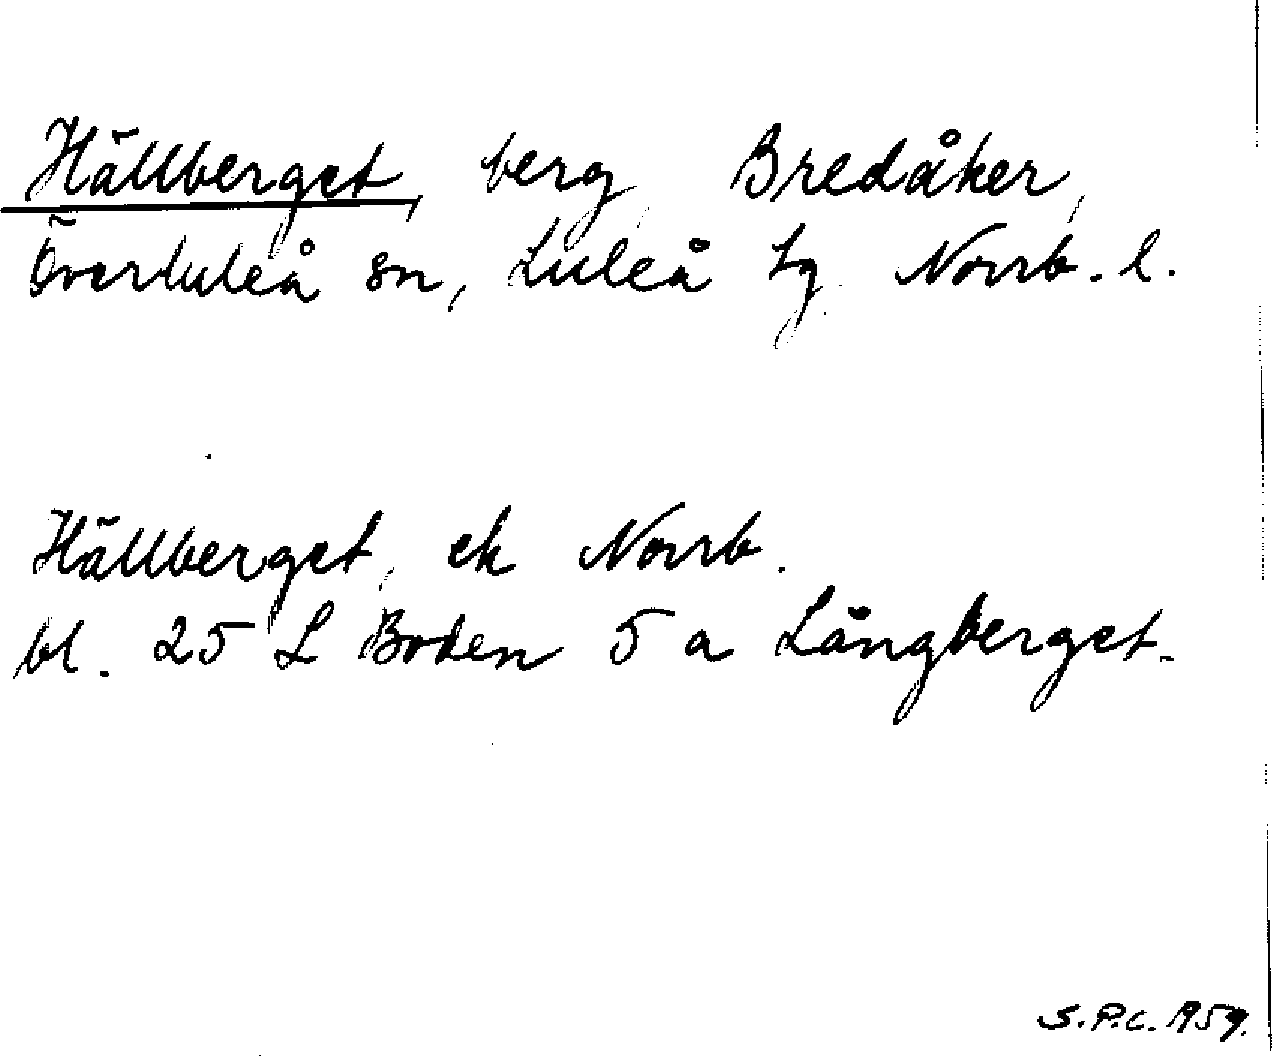 Hällberget, berg, Bredåker,
Överluleå sn, Luleå tg. Norrb. l.
Hällberget, ek Norrb.
bl. 25 L Boden 5 a Långberget.
S.P.C. 1959.